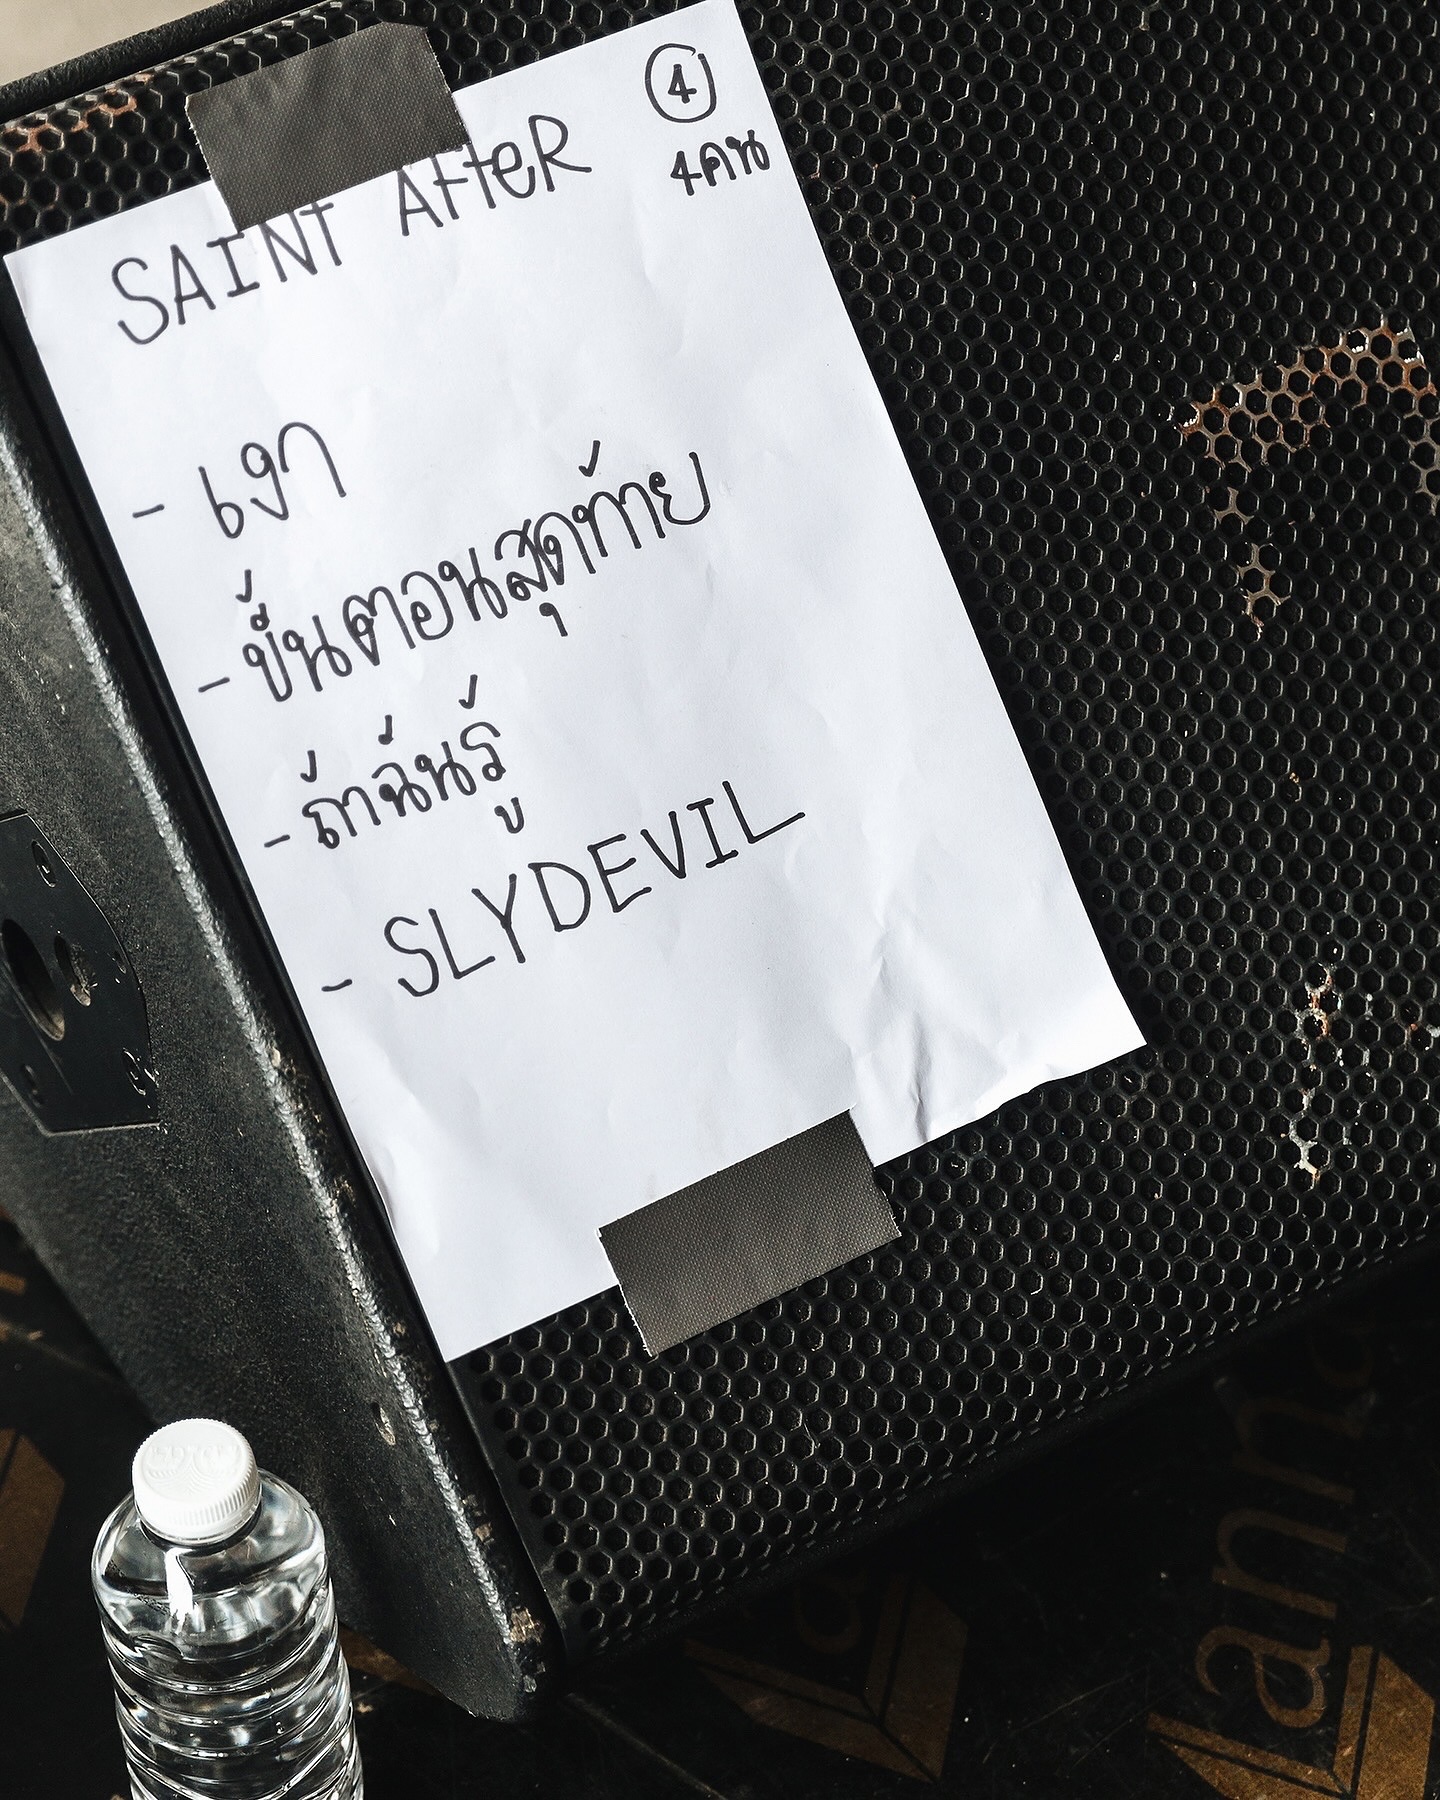 ④
4คน
SAINT AfteR
- เงา
- ขั้นตอนสุดท้าย
- ถ้าฉันรู้
- SLYDEVIL